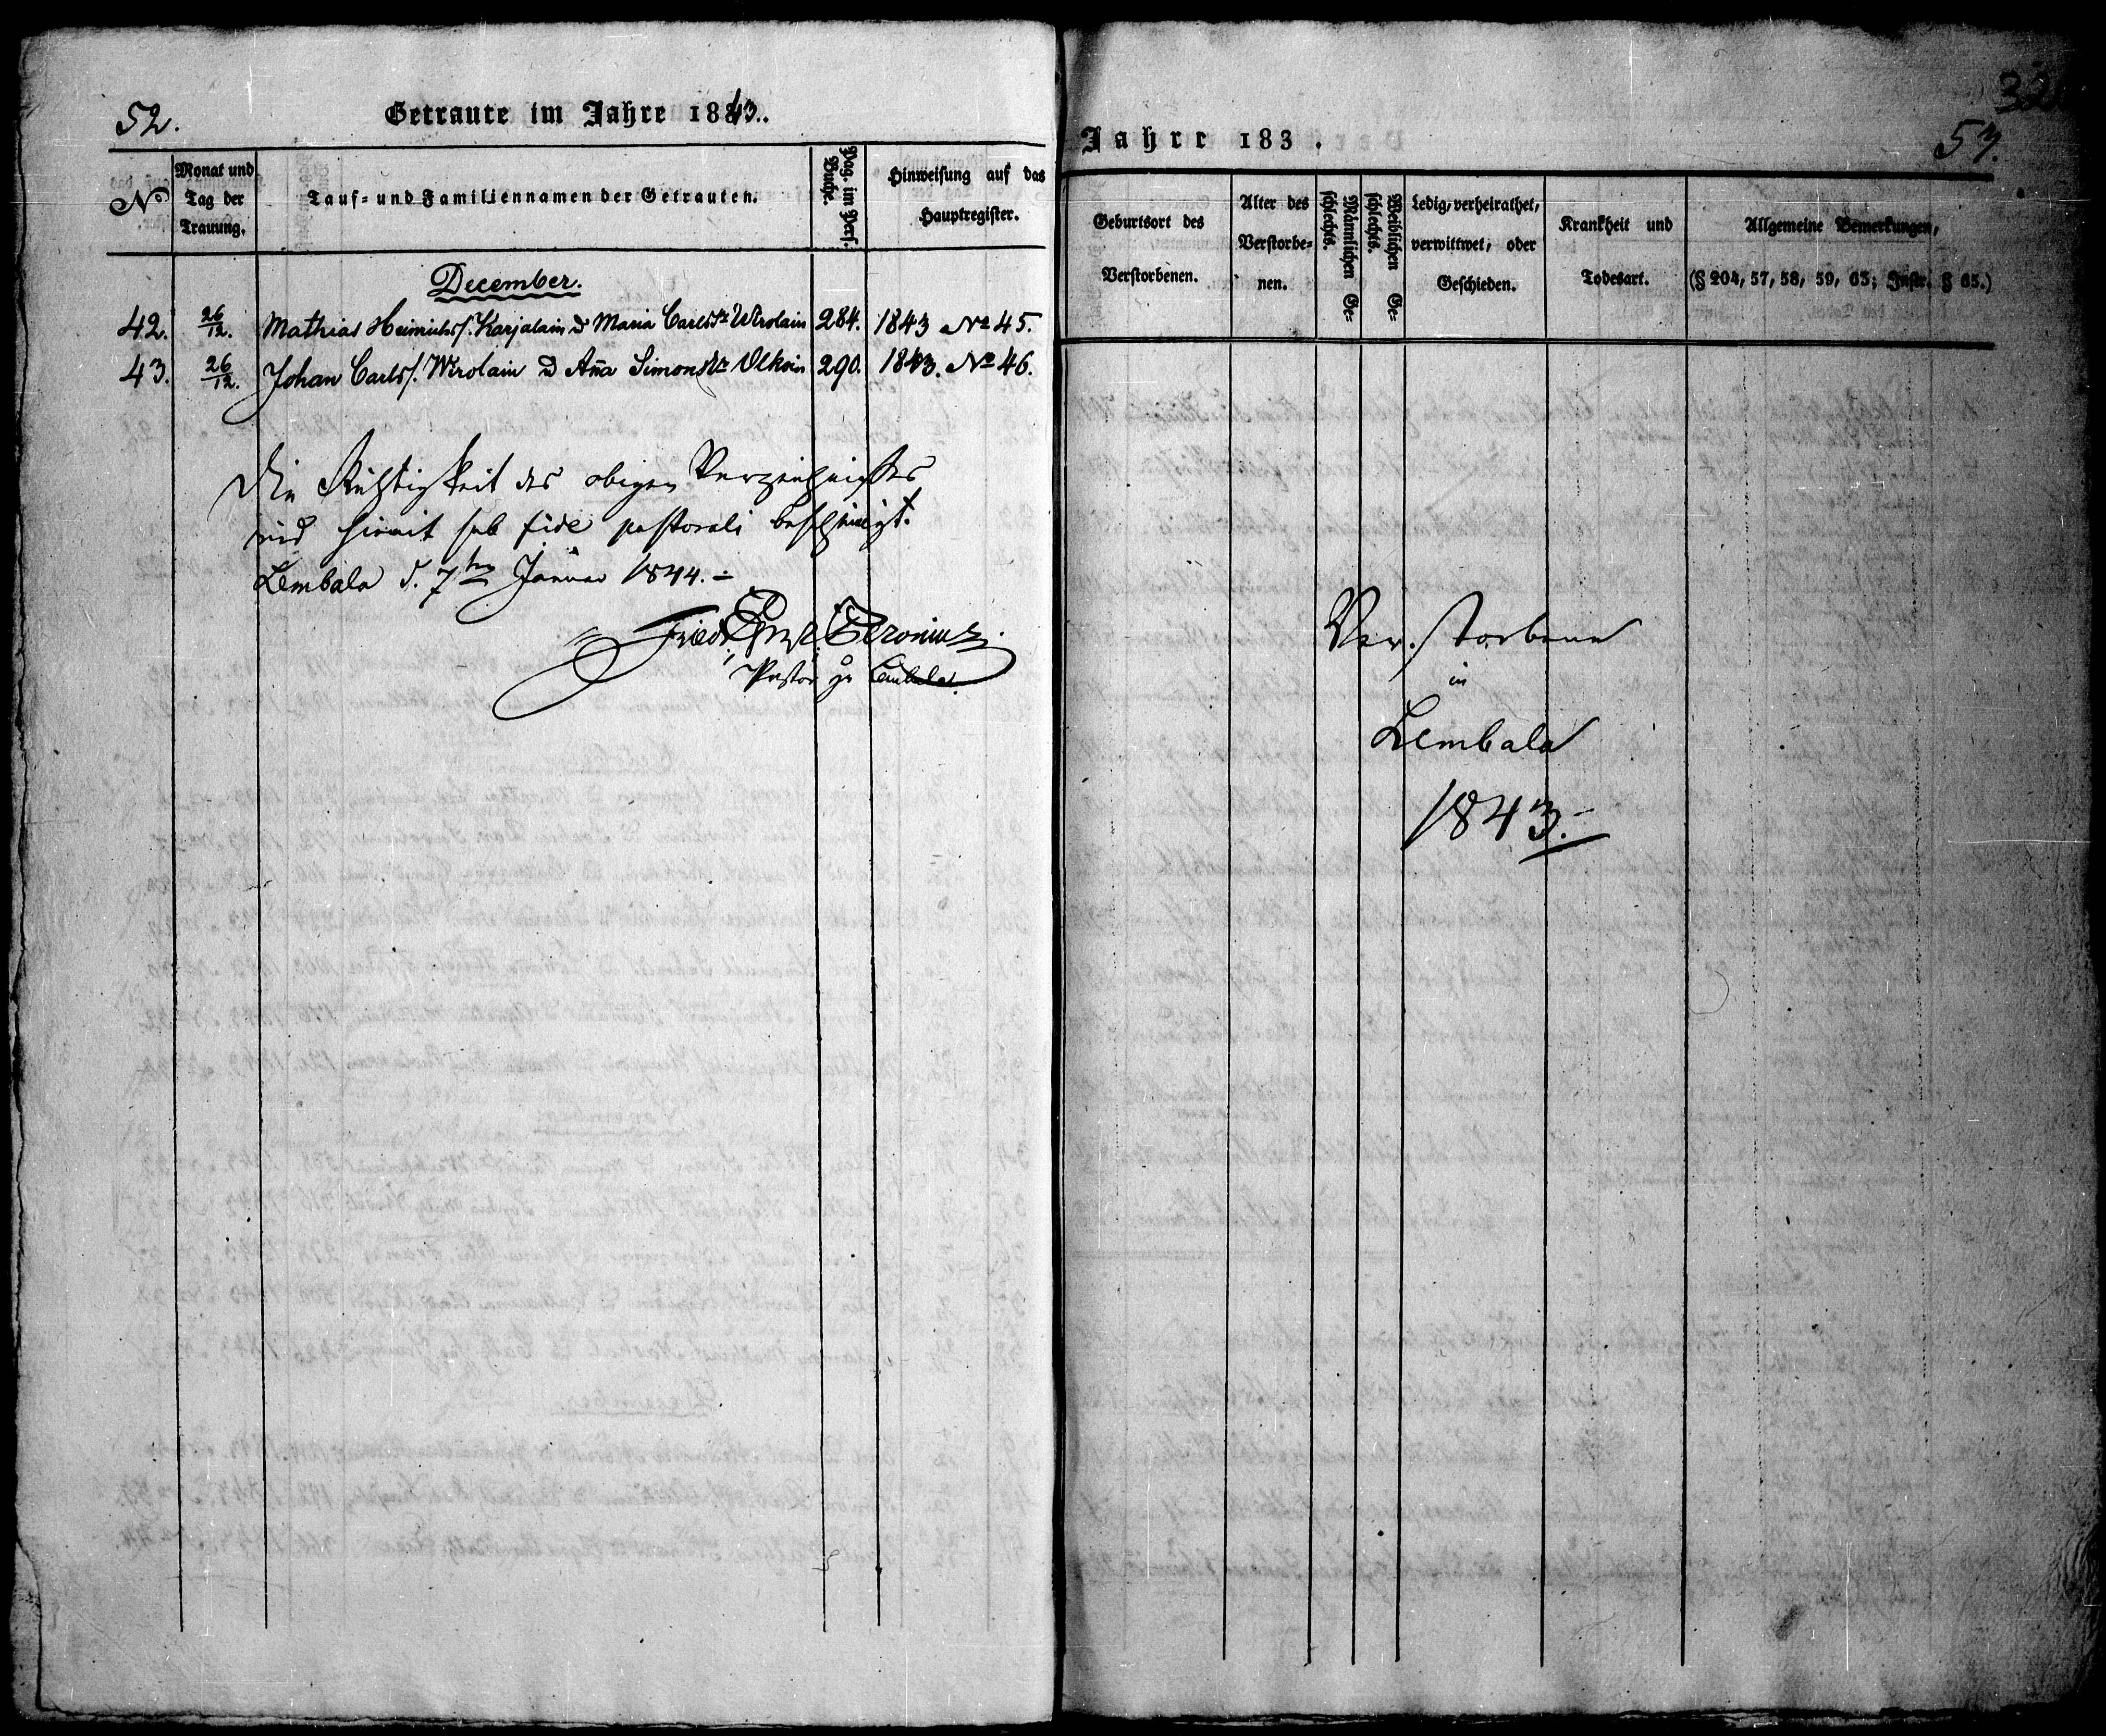 52.
Getraute im Jahre 1843.
No
Monat und Tag der Trauung.
Tauf- und Familiennamen der Getrauten.
Pag. im Pers. Buche.
Hinweisung auf das Hauptregister.
December.
42. 26/12. Mathias Heinrichs/. Karjalain & Maria Carlsstr Wirolain 284. 1843 No 45.
43. 26/12. Johan Carls/. Wirolain & Anna Simonstr Ulkoin 290. 1843. No 46.
Die Richtigkeit des obigen Verzeichnisses
wird hiemit sub fide pastorali bescheinigt.
Lembala d. 7ten Januar 1844.
Friedr.
Pastor zu Lembala.
32
57.
Jahre 183 .
Geburtsort des Verstorbenen.
Alter des Verstorbe-nen.
Männlichen Ge-schlechts.
Weiblichen Ge-schlechts.
Ledig, verheirathet, verwittwet, oder Geschieden.
Krankheit und Todesart.
Allgemeine Bemerkungen,
(§ 204, 57, 58, 59, 63; Instr. § 65.)
Verstorbene
in
Lembala
1843.